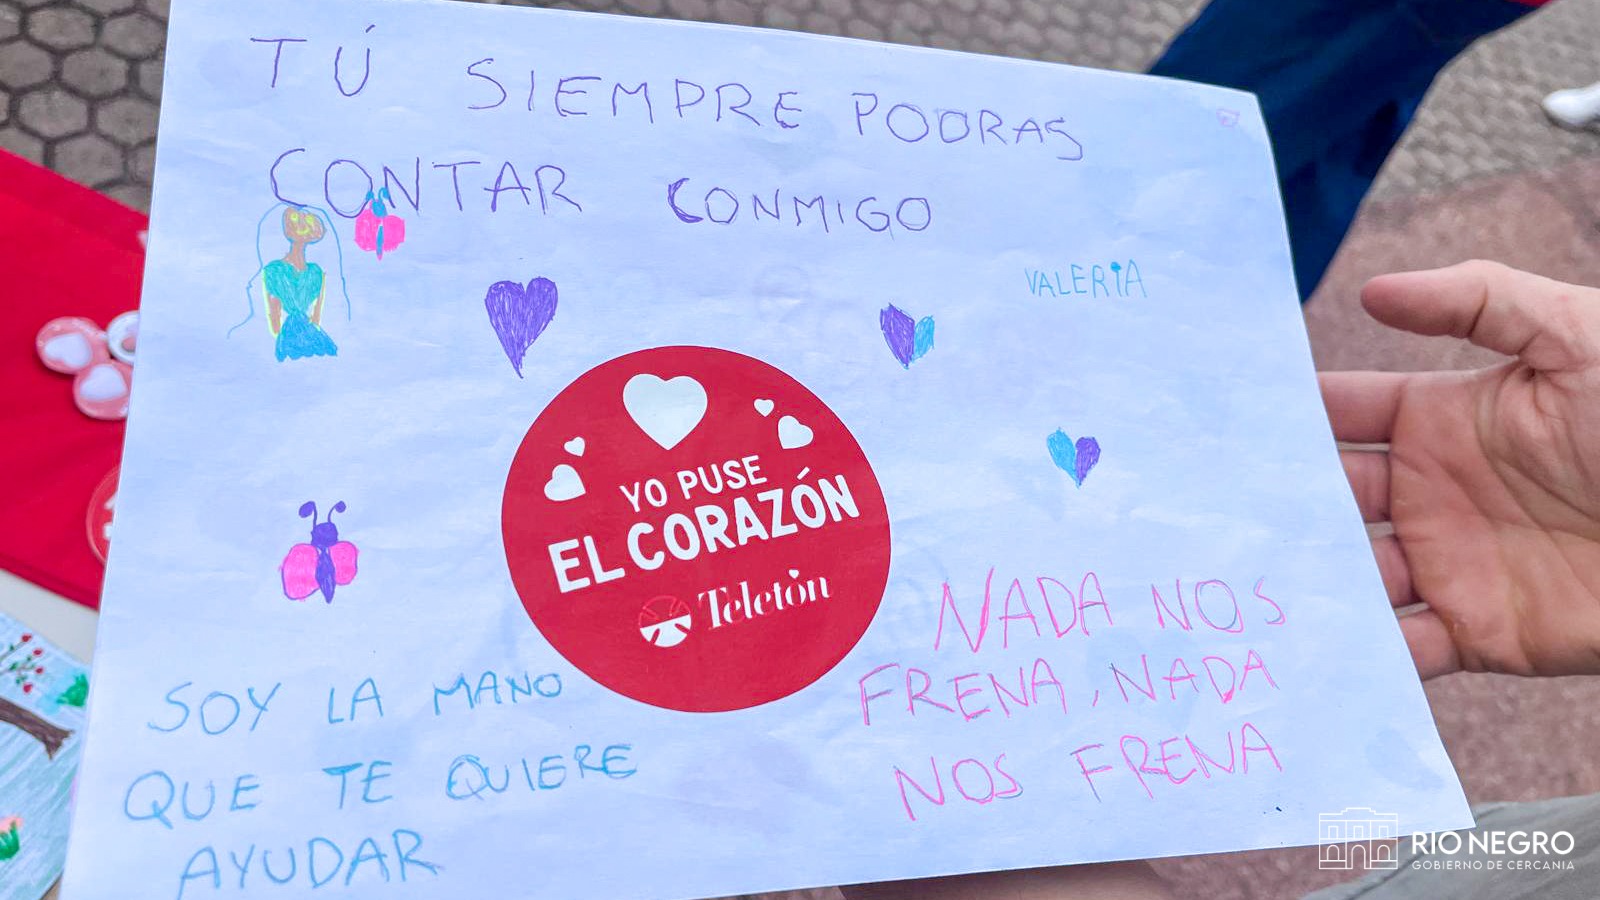 TÚ SIEMPRE PODRAS
CONTAR CONMIGO
VALERIA
YO PUSE
EL CORAZÓN
Teletón
NADA NOS
FRENA, NADA
NOS FRENA
SOY LA MANO
QUE TE QUIERE
AYUDAR
RIO NEGRO
GOBIERNO DE CERCANIA